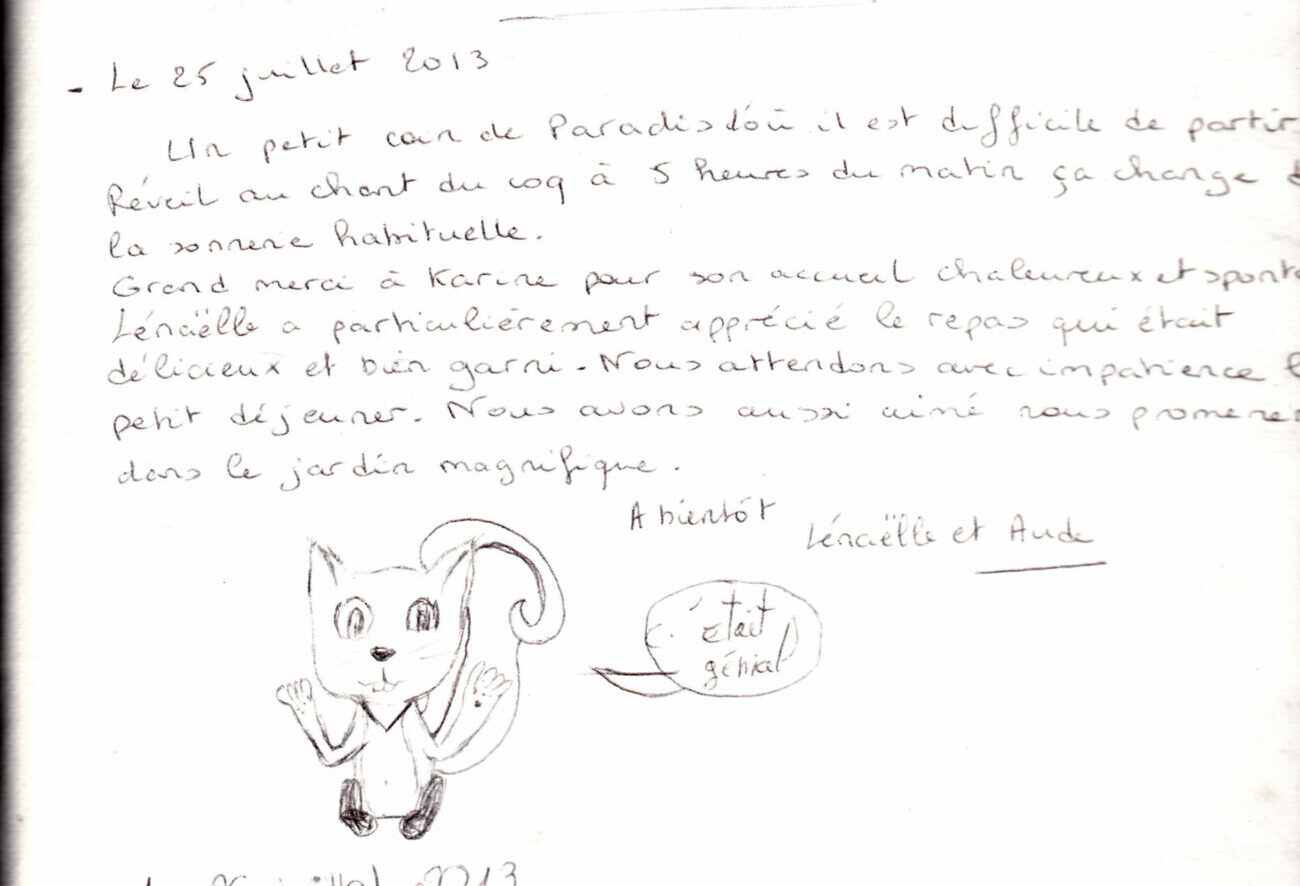 - Le 25 juillet 2013
Un petit coin de Paradis d'où il est difficile de partir
Réveil au chant du coq à 5 heures du matin ça change
la sonnerie habituelle.
Grand merci à Karine pour son accueil chaleureux et spont
Lénaëlle a particulièrement apprécié le repas qui était
délicieux et bien garni. Nous attendons avec impatience l
petit déjeuner. Nous avons aussi aimé nous promener
dans le jardin magnifique.
A bientôt
Lénaëlle et Aude
C'était
génial
2013